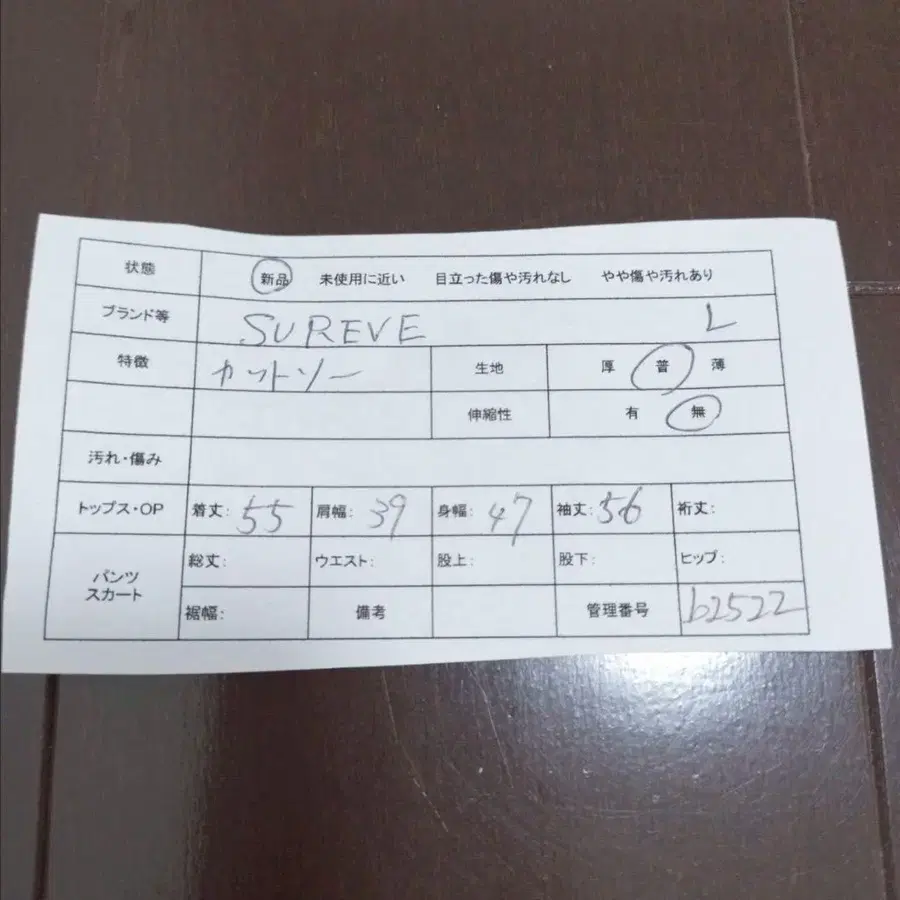 状態 新品 未使用に近い 目立った傷や汚れなし やや傷や汚れあり
ブランド等 SUREVE L
特徴 カットソー 生地 厚 普 薄
伸縮性 有 無
汚れ・傷み
トップス・OP 着丈: 55 肩幅: 39 身幅: 47 袖丈: 56 裄丈:
パンツ スカート 総丈: ウエスト: 股上: 股下: ヒップ:
裾幅: 備考 管理番号 b2522